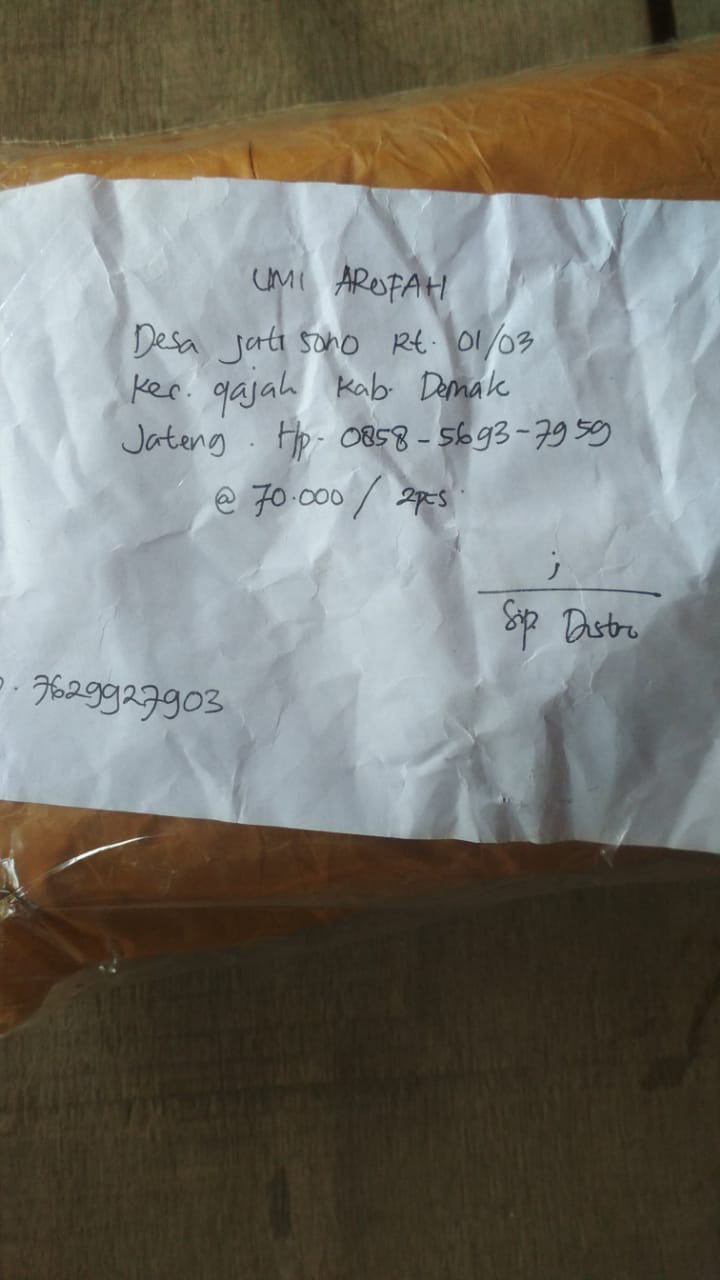 UMI AROFAH
Desa jati sono Rt. 01/03
Kec. gajah Kab. Demak
Jateng . Hp - 0858-5693-7959
@ 70.000 / 2pcs
;
Sip Distro
. 7629927903